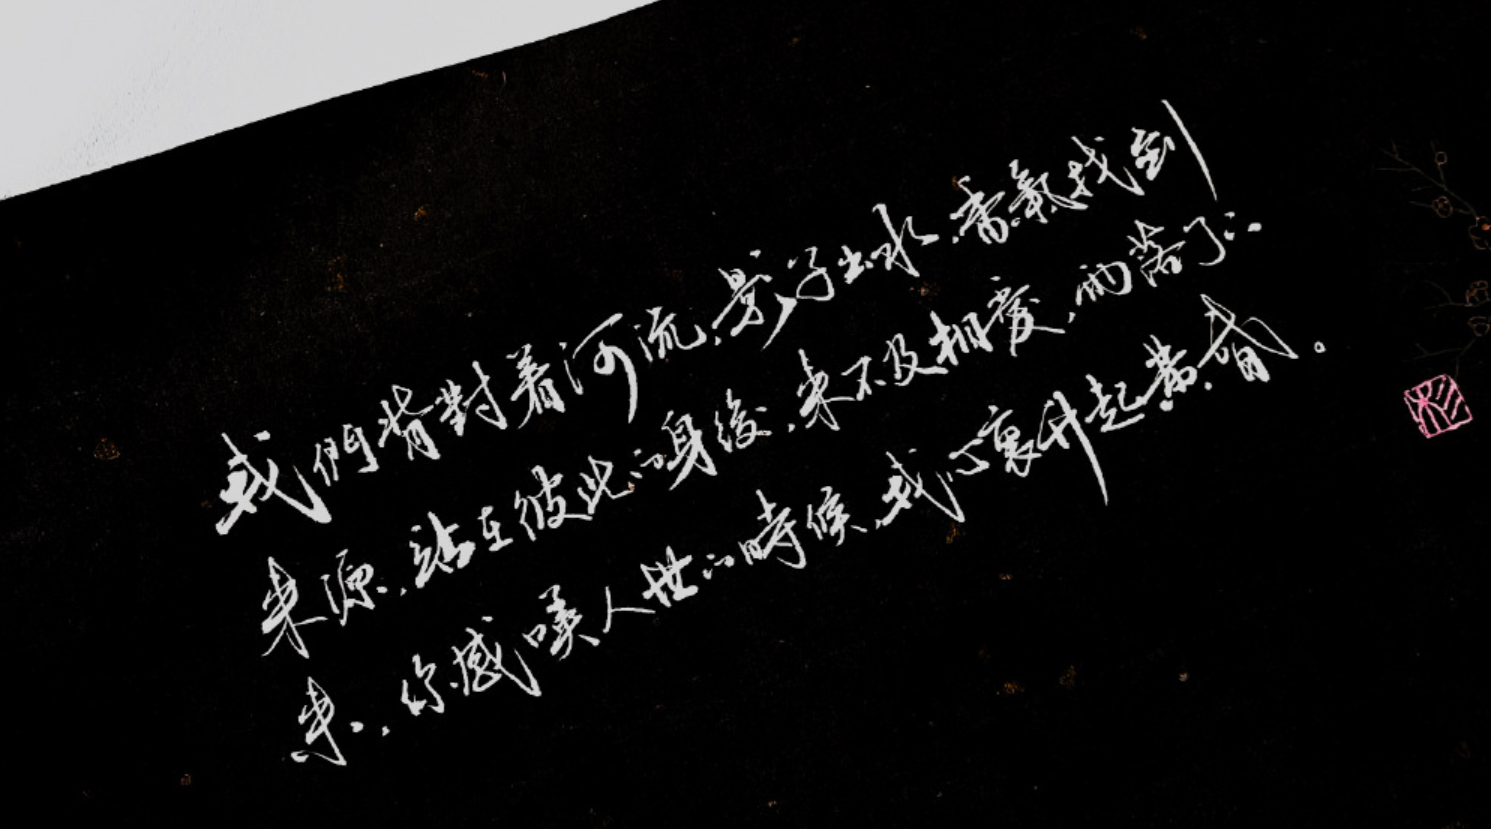 我們背對着河流,影子出水,香氣找到
來源,站在彼此的身後,來不及相愛,雨落了下
來,你感嘆人世的時候,我心裏升起黃昏。